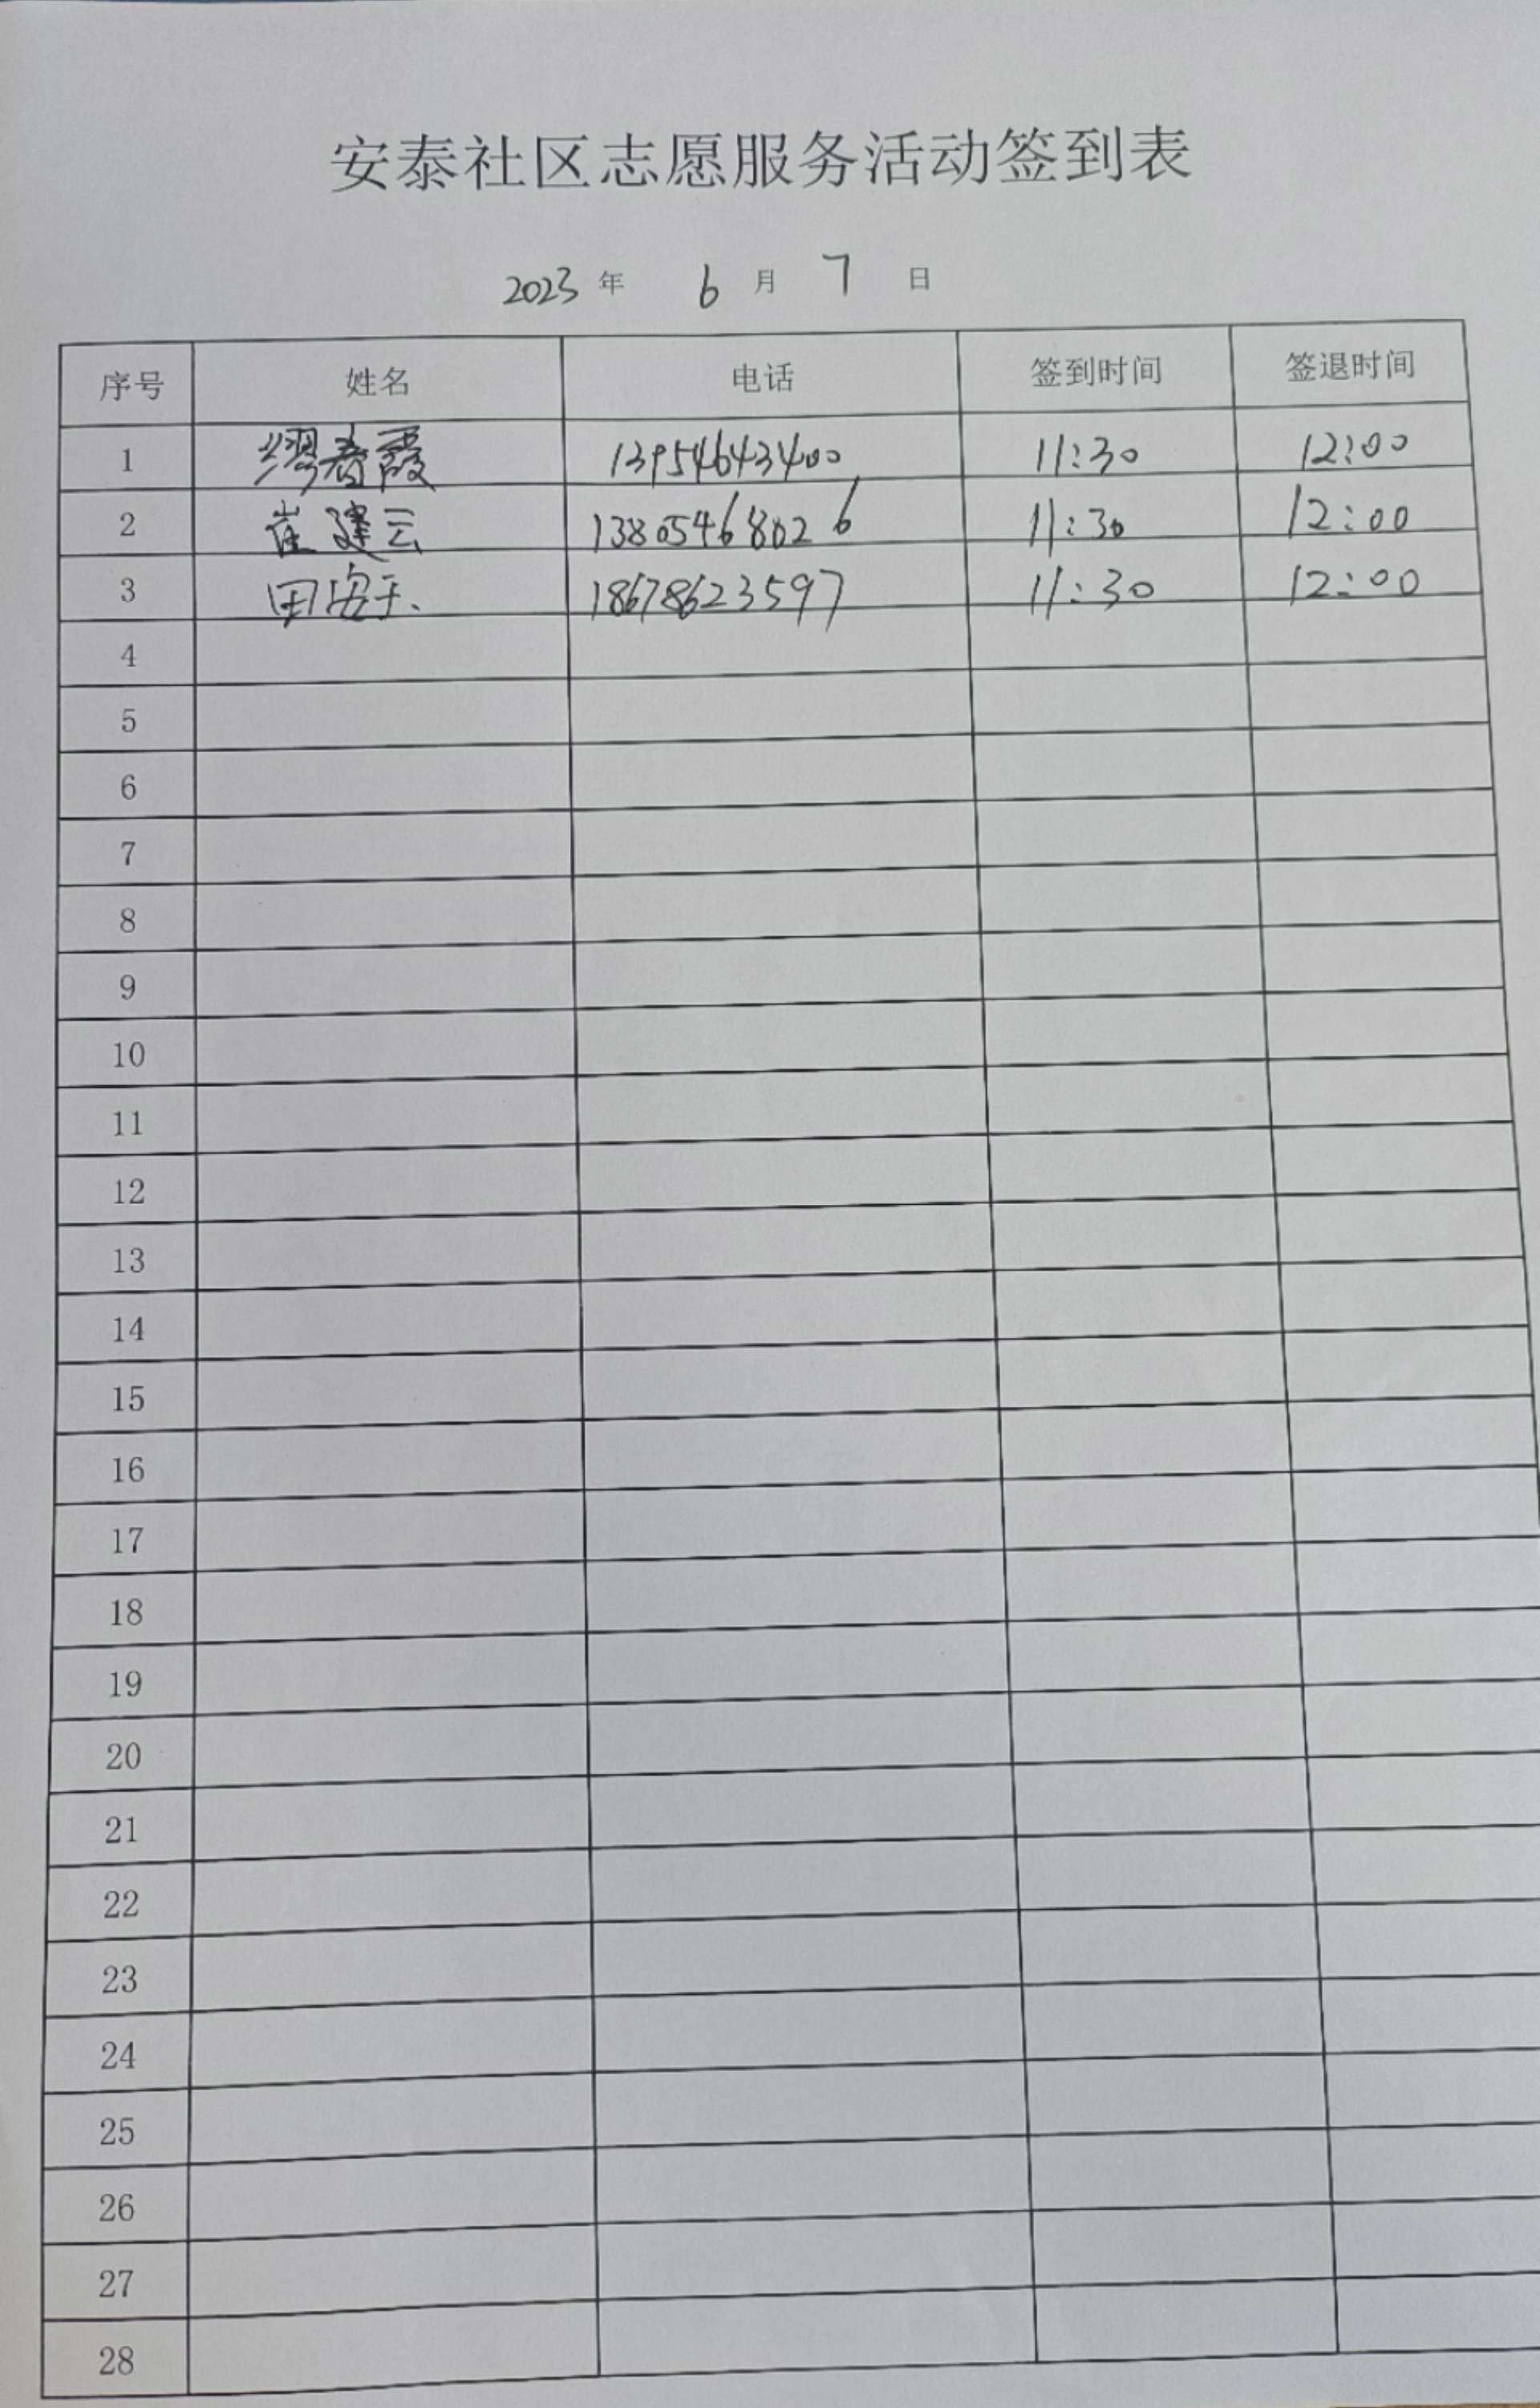 安泰社区志愿服务活动签到表
2023 年 6 月 7 日
序号 姓名 电话 签到时间 签退时间
1 缪春霞 13954643400 11:30 12:00
2 崔建云 13805468026 11:30 12:00
3 田 18678623597 11:30 12:00
4
5
6
7
8
9
10
11
12
13
14
15
16
17
18
19
20
21
22
23
24
25
26
27
28